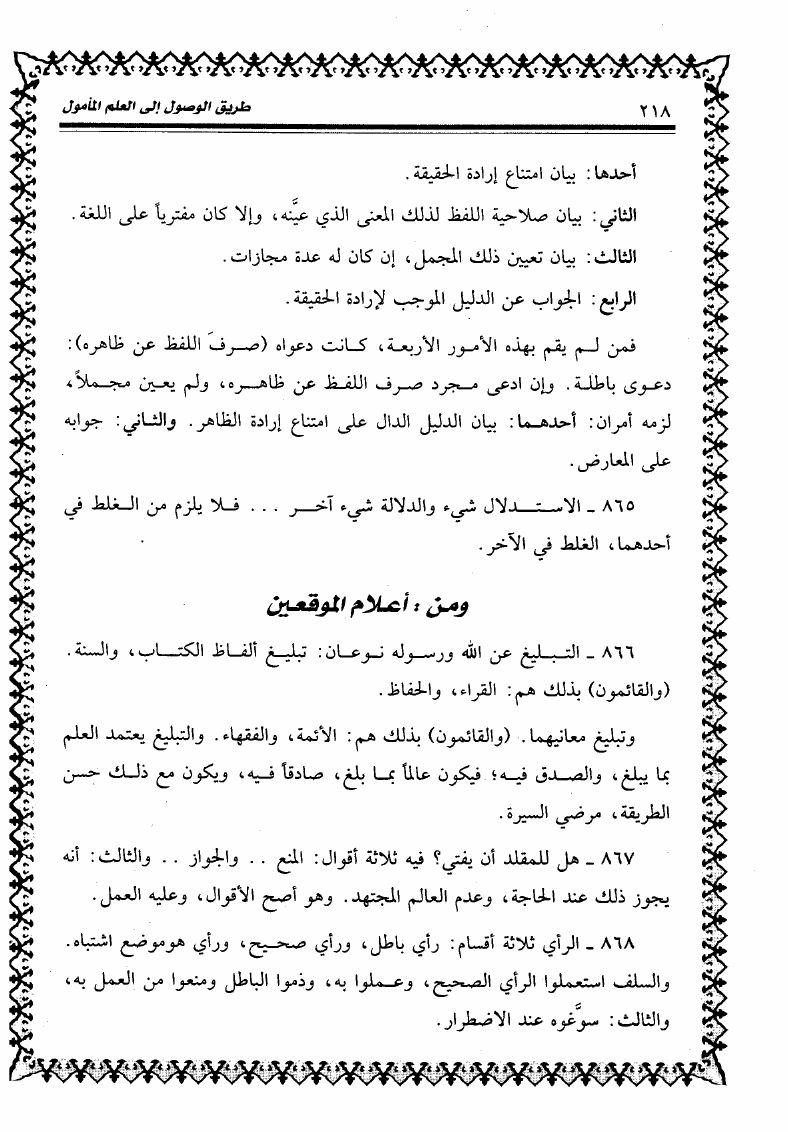 ٢١٨
طريق الوصول إلى العلم المأمول
أحدها: بيان امتناع إرادة الحقيقة.
الثاني: بيان صلاحية اللفظ لذلك المعنى الذي عيَّنه، وإلا كان مفترياً على اللغة.
الثالث: بيان تعيين ذلك المجمل، إن كان له عدة مجازات.
الرابع: الجواب عن الدليل الموجب لإرادة الحقيقة.
فمن لم يقم بهذه الأمور الأربعة، كانت دعواه (صرفَ اللفظ عن ظاهره):
دعوى باطلة. وإن ادعى مجرد صرف اللفظ عن ظاهره، ولم يعين مجملاً،
لزمه أمران: أحدهما: بيان الدليل الدال على امتناع إرادة الظاهر. والثاني: جوابه
على المعارض.
٨٦٥ - الاستدلال شيء والدلالة شيء آخر ... فلا يلزم من الغلط في
أحدهما، الغلط في الآخر.
ومن : أعلام الموقعين
٨٦٦ - التبليغ عن الله ورسوله نوعان: تبليغ ألفاظ الكتاب، والسنة.
(والقائمون) بذلك هم: القراء، والحفاظ.
وتبليغ معانيهما. (والقائمون) بذلك هم: الأئمة، والفقهاء. والتبليغ يعتمد العلم
بما يبلغ، والصدق فيه؛ فيكون عالماً بما بلغ، صادقاً فيه، ويكون مع ذلك حسن
الطريقة، مرضي السيرة.
٨٦٧ - هل للمقلد أن يفتي؟ فيه ثلاثة أقوال: المنع .. والجواز .. والثالث: أنه
يجوز ذلك عند الحاجة، وعدم العالم المجتهد. وهو أصح الأقوال، وعليه العمل.
٨٦٨ - الرأي ثلاثة أقسام: رأي باطل، ورأي صحيح، ورأي هوموضع اشتباه.
والسلف استعملوا الرأي الصحيح، وعملوا به، وذموا الباطل ومنعوا من العمل به،
والثالث: سوَّغوه عند الاضطرار.